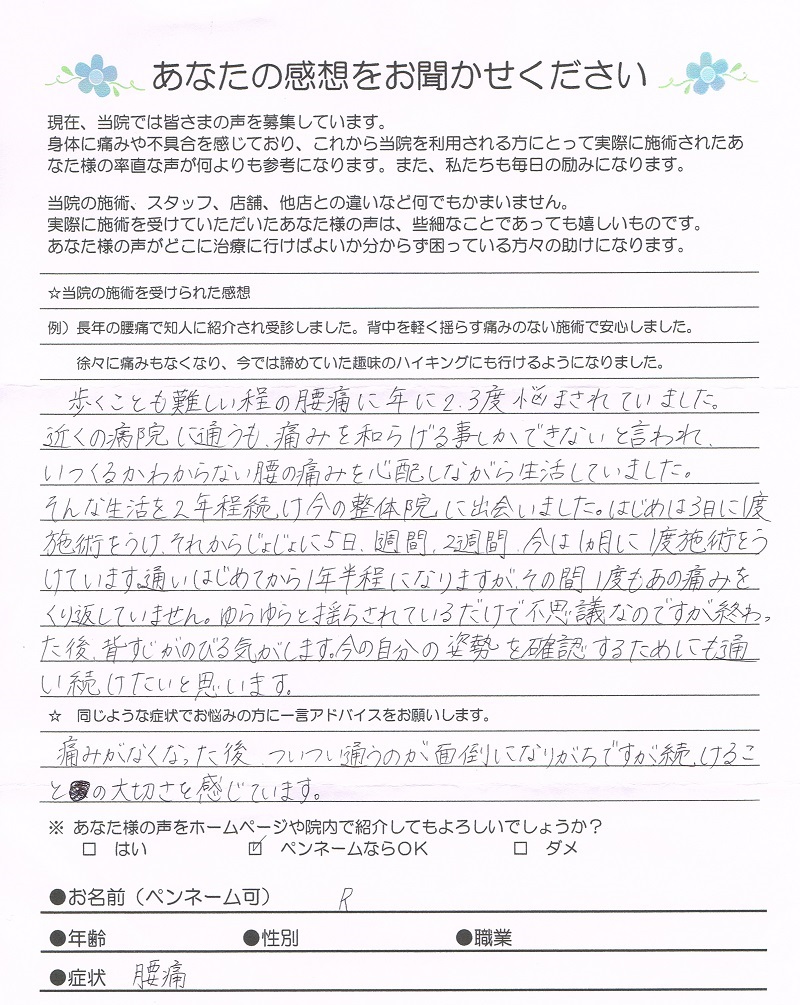 あなたの感想をお聞かせください
現在、当院では皆さまの声を募集しています。
身体に痛みや不具合を感じており、これから当院を利用される方にとって実際に施術されたあ
なた様の率直な声が何よりも参考になります。また、私たちも毎日の励みになります。
当院の施術、スタッフ、店舗、他店との違いなど何でもかまいません。
実際に施術を受けていただいたあなた様の声は、些細なことであっても嬉しいものです。
あなた様の声がどこに治療に行けばよいか分からず困っている方々の助けになります。
☆当院の施術を受けられた感想
例）長年の腰痛で知人に紹介され受診しました。背中を軽く揺らす痛みのない施術で安心しました。
徐々に痛みもなくなり、今では諦めていた趣味のハイキングにも行けるようになりました。
歩くことも難しい程の腰痛に年に2.3度悩まされていました。
近くの病院に通うも、痛みを和らげる事しかできないと言われ、
いつくるかわからない腰の痛みを心配しながら生活していました。
そんな生活を2年程続け今の整体院に出会いました。はじめは3日に1度
施術をうけ、それからじょじょに5日、1週間、2週間、今は1ヵ月に1度施術をう
けています。通いはじめてから1年半程になりますが、その間1度もあの痛みを
くり返していません。ゆらゆらと揺らされているだけで不思議なのですが終わっ
た後、背すじがのびる気がします。今の自分の姿勢を確認するためにも通
い続けたいと思います。
☆ 同じような症状でお悩みの方に一言アドバイスをお願いします。
痛みがなくなった後、ついつい通うのが面倒になりがちですが続けるこ
との大切さを感じています。
※ あなた様の声をホームページや院内で紹介してもよろしいでしょうか？
□ はい ☑ ペンネームならOK □ ダメ
●お名前（ペンネーム可） R
●年齢 ●性別 ●職業
●症状 腰痛